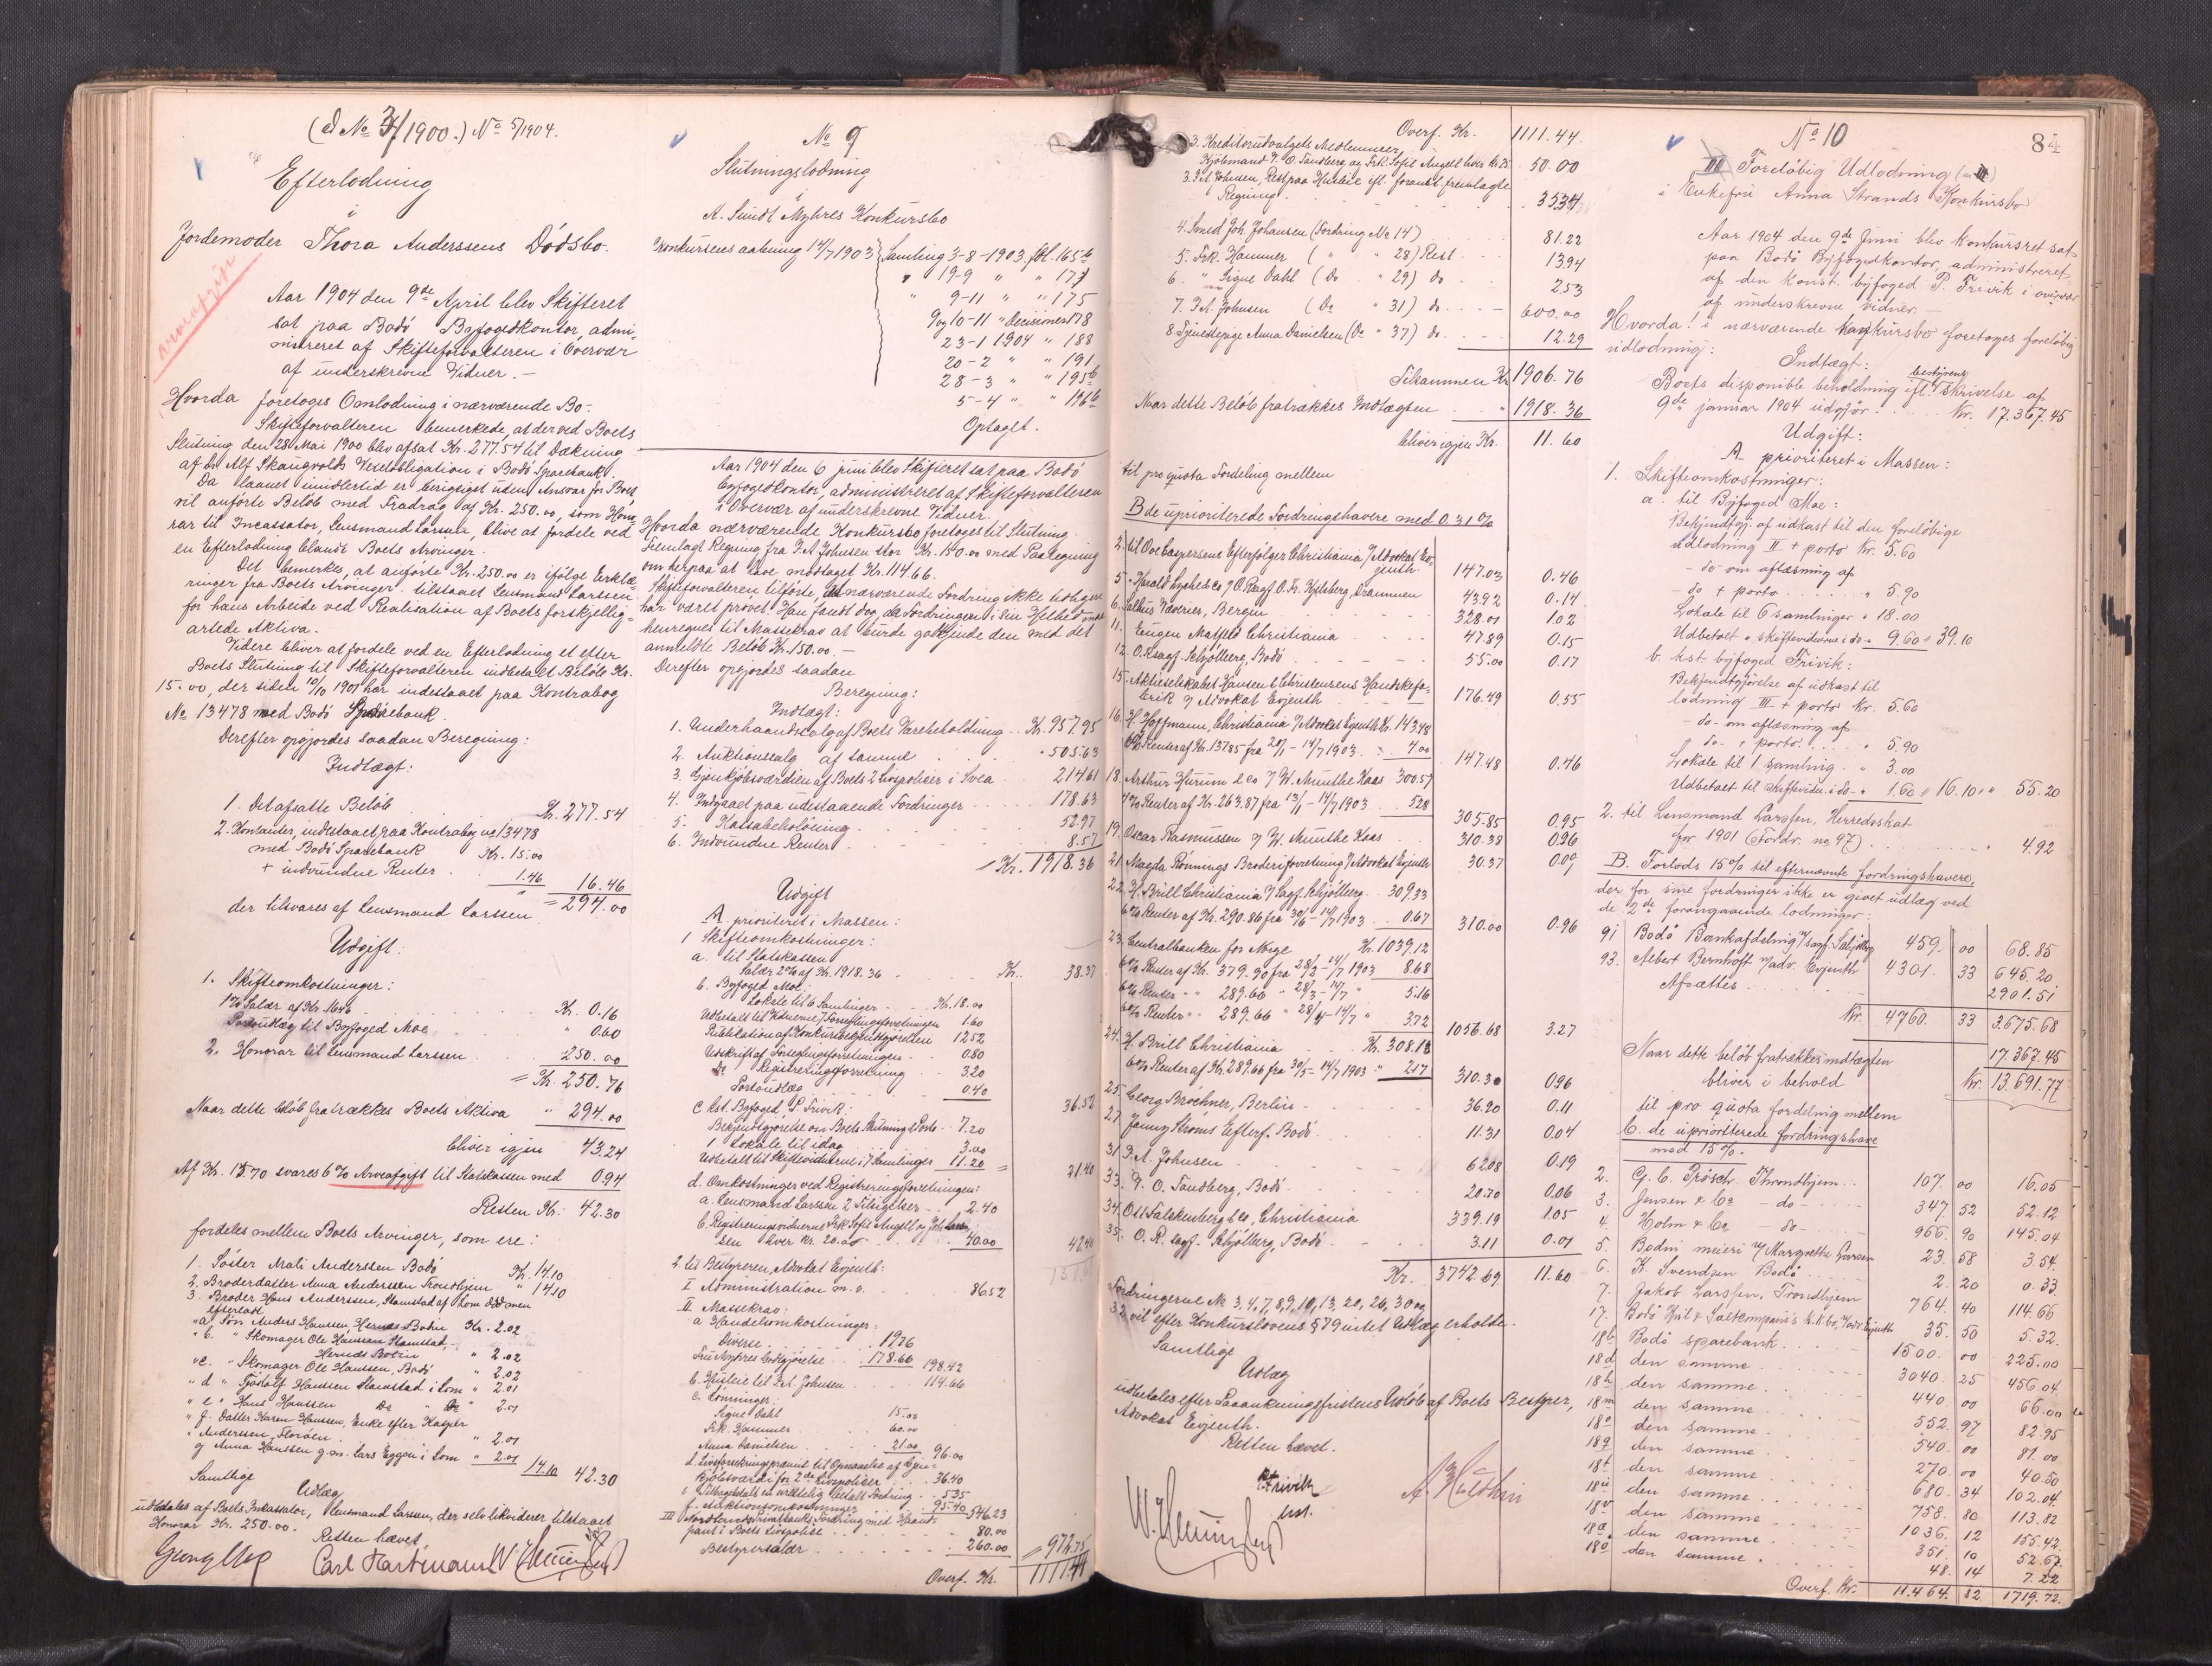 (ad No 3/1900.) No 5/1904.
Efterlodning
i
Jordemoder Thora Anderssens Dødsbo.
arveafgift
Aar 1904 den 9de April blev Skifteret
sat paa Bodø Byfogedkontor, admi-
nistreret af Skifteforvalteren i Overvær
af underskrevne Vidner. –
Hvorda foretoges Omlodning i nærværende Bo.
Skifteforvalteren bemerkede, at der ved Boets
Slutning den 28 Mai 1900 blev afsat Kr. 277.54 til Dækning
af Dr. Alf Skaugvolds Vexelobligation i Bodø Sparebank.
Da laanet imidlertid er berigtiget uden Ansvar for Boet
vil anførte Beløb med Fradrag af Kr. 250.00, som Hono-
rar til Incassator, Lensmand Larssen, blive at fordele ved
en Efterlodning blandt Boets Arvinger.
Det bemerkes, at anførte Kr. 250.00 er ifølge Erklæ-
ringer fra Boets Arvinger tilstaaet Lensmand Larssen
for hans Arbeide ved Realisation af Boets forskjellig-
artede Aktiva.
Videre bliver at fordele ved en Efterlodning et efter
Boets Slutning til Skifteforvalteren indbetalt Beløb Kr.
15.00, der siden 10/10 1901 har indestaaet paa Kontrabog
No 13478 med Bodø Sparebank.
Derefter opgjordes saadan Beregning:
Indtægt:
1. Det afsatte Beløb Kr. 277.54
2. Kontanter, indestaaet paa Kontrabog No 13478
med Bodø Sparebank Kr. 15.00
+ indvundne Renter 1.46 16.46
der tilsvares af Lensmand Larssen = 294.00
Udgift:
1. Skifteomkostninger:
1% Salær af Kr. 16.46 Kr. 0.16
Portoudlæg til Byfoged Moe " 0.60
2. Honorar til Lensmand Larssen 250.00
= Kr. 250.76
Naar dette beløb fratrækkes Boets Aktiva " 294.00
bliver igjen 43.24
Af Kr. 15.70 svares 6% Arveafgift til Statskassen med 0.94
Resten Kr. 42.30
fordeles mellem Boets Arvinger, som ere:
1. Søster Mali Anderssen Bodø Kr. 14.10
2. Broderdatter Anna Anderssen Trondhjem " 14.10
3. Broder Hans Anderssen, Stamstad af Lom død men
efterladt
"a, Søn Anders Hanssen, Hernæs Bodin Kr. 2.02
"b. " Skomager Ole Hanssen Stamstad,
Hernæs Bodin " 2.02
"c. " Skomager Ole Hanssen, Bodø " 2.02
"d " Fjødolf Hanssen Stamstad i Lom " 2.01
"e " Hans Hanssen Do " Do " 2.01
"f. Datter Karen Hanssen, Enke efter Kasper
Anderssen, Florøen " 2.01
g Anna Hanssen g.m. Lars Eggen i Lom " 2.01 14.10 42.30
Samtlige
Udlæg
udbetales af Boets Inkassator, Lensmand Larssen, der selv likviderer tilstaaet
Honorar Kr. 250.00.
Retten hævet.
Georg Moe Carl Hartmann
No 9
Slutningslodning
i
A. Sundt Myhres Konkursbo
Konkursens aabning 14/7 1903 Samling 3-8-1903 fol. 165b
" 19-9 " " 171
" 9-11 " " 175
9 og 10-11 " Decisioner 178
23-1 1904 " 188
20-2 " " 191
28-3 " " 195b
5-4 " " 196b
Optaget.
Aar 1904 den 6 juni blev Skifteret sat paa Bodø
Byfogedkontor, administreret af Skifteforvalteren
i Overvær af underskrevne Vidner.
Hvorda nærværende Konkursbo foretoges til Slutning.
Fremlagt Regning fra F.A. Johnsen stor Kr. 150.00 med Paategning
om herpaa at have modtaget Kr. 114.66.
Skifteforvalteren tilførte, at nærværende Fordring ikke tidligere
har været prøvet. Han fandt dog, da Fordringen i sin Helhed maa
henregnes til Massekrav at burde godkjende den med det
anmeldte Beløb Kr. 150.00. –
Derefter opgjordes saadan
Beregning:
Indtægt:
1. Underhaandssalg af Boets Varebeholdning Kr. 957.95
2. Auktionssalg af samme " 505.63
3. Gjenkjøbsværdien af Boets 2 Livspolicer i Svea 214.61
4. Indgaaet paa udestaaende Fordringer 178.63
5. Kassabeholdning 52.97
6. Indvundne Renter 8.57
= Kr. 1918.36
Udgift
A prioriteret i Massen:
1 Skifteomkostninger:
a. til Statskassen
Salær 2% af Kr. 1918.36 Kr. 38.37
b. Byfoged Moe:
Lokale til 6 Samlinger Kr. 18.00
Udbetalt til Vidnerne i Forseglingsforretningen 1.60
Publikation af Konkursbekjendtgjørelsen 12.52
Udskrift af Forseglingsforretningen 0.80
Do Registreringsforretning 3.20
Portoudlæg 0.40
36.52
c kst. Byfoged P. Trivik:
Bekjendtgjørelse om Boets Slutning & Porto 7.20
1 Lokale til idag 3.00
Udbetalt til Skiftevidnerne i 7 Samlinger 11.20 = 21.40
d. Omkostninger ved Registreringsforretningen:
a. Lensmand Larssen 2 Tilsigelser 2.40
b. Registreringsvidnerne Frk. Sofie Angell og Joh. Lars-
sen hver Kr. 20.00 40.00 42.40
2. til Bestyreren, Advokat Evjenth:
I Administration m.v. 86.52
II Massekrav:
a Handelsomkostninger:
Diverse 19.76
Fru Myhres Godtgjørelse 178.66 198.42
b. Husleie til F.A. Johnsen 114.66
c. Lønninger:
Signe Dahl 15.00
Frk. Hammer 60.00
Anna Danielsen 21.00 96.00
d. Livsforsikringspræmie til Opnaaelse af Gjen-
kjøbsværdi for 2de Livspolicer 36.40
e Tilbagebetalt en urettelig betalt Fordring 5.35
f. Auktionsomkostninger 95.40 546.23
III Nordlands Privatbanks Fordring med Haand-
pant i Boets Livspolice 80.00
Bestyrersalær 260.00 = 972.75
Overf. Kr. 1111.44
Overf. Kr. 1111.44
3. Kreditorudvalgets Medlemmer,
Kjøbmand T. O. Sandberg og Frk. Sofie Angell hver Kr. 25. 50.00
3. F.A. Johnsen, Rest paa Husleie ifl. foranst. fremlagte
Regning 35.34
4. Smed Joh. Johansen (Fordring No 14) 81.22
5. Frk. Hammer ( " " 28) Rest 13.94
6. " Signe Dahl (Do " 29) do 2.53
7. F.A. Johnsen (Do " 31) do 600.00
8. Tjenestepige Anna Danielsen (Do " 37) do 12.29
Tilsammen Kr. 1906.76
Naar dette Beløb fratrækkes Indtægten " 1918.36
bliver igjen Kr. 11.60
til pro quota Fordeling mellem
B de uprioriterede Fordringshavere med 0.31%
2. til Ove Caspersens Efterfølger Christiania v/Advokat Ev-
jenth 147.03 0.46
5. " Harald Lyche & Co v/O.Rsagf. O. Fr. Kjelsberg Drammen 43.92 0.14
6. Salhus Væverier, Bergen 328.01 1.02
11. Eugen Matfeld Christiania 47.89 0.15
12. O.Rsagf. Schjølberg, Bodø 55.00 0.17
15. Aktieselskabet Hansen & Christensens Handskefa-
brik v/ Advokat Evjenth 176.49 0.55
16. H. Hoffmann, Christiania v/Advokat Evjenth Kr. 143.48
6% Renter af Kr. 137.85 fra 20/1 – 14/7 1903 4.00 147.48 0.46
18. Arthur Hurum & Co v/ W. Munthe Kaas 300.57
4% Renter af Kr. 263.87 fra 13/1 – 14/7 1903 5.28 305.85 0.95
19. Oscar Rasmussen v/ W. Munthe Kaas 310.38 0.96
21. Magda Rønnings Broderiforretning v/Advokat Evjenth 30.37 0.09
22. H. Brill Christiania v/ Sagf. Schjølberg 309.33
6% Renter af Kr. 290.86 fra 30/6 – 14/7 1903 0.67 310.00 0.96
23. Centralbanken for Norge Kr. 1039.12
6% Renter af Kr. 379.90 fra 28/2 – 14/7 1903 8.68
6% Renter " " 289.66 " 28/3 – 14/7 " 5.16
6% Renter " " 289.66 " 28/4 – 14/7 " 3.72 1056.68 3.27
24. H. Brill Christiania Kr. 308.13
6% Renter af Kr. 289.66 fra 30/5 – 14/7 1903 " 2.17 310.30 0.96
25. Georg Brochner, Berlin 36.20 0.11
27. Jenny Strøms Efterf. Bodø 11.31 0.04
31. F.A. Johnsen 62.08 0.19
33. T. O. Sandberg, Bodø 20.70 0.06
34. Ost Falkenberg & Co, Christiania 339.19 1.05
35. O. R. sagf. Schjølberg, Bodø 3.11 0.01
Kr. 3742.69 11.60
Fordringerne No 3, 4, 7, 8, 9, 10, 13, 20, 26, 30 og
32 vil efter Konkurslovens § 79 intet Udlæg erholde.
Samtlige
Udlæg
udbetales efter Paaankningsfristens Udløb af Boets Bestyrer,
Advokat Evjenth.
Retten hævet.
P. Trivik
kst.
No 10
84
III Foreløbig Udlodning
i Enkefru Anna Strands Konkursbo
Aar 1904 den 9de Juni blev konkursret sat
paa Bodø Byfogedkontor, administreret
af den konst. byfoged P. Trivik i overvær
af underskrevne vidner. –
Hvorda! i nærværende konkursbo foretoges foreløbig
udlodning:
Indtægt:
Boets disponible beholdning ifl. bestyrers skrivelse af
9de januar 1904 udgjør Kr. 17.367.45
Udgift:
A. prioriteret i Massen:
1. Skifteomkostninger:
a. til Byfoged Moe:
Bekjendtgj. af udkast til den foreløbige
udlodning II + porto Kr. 5.60
– do – om aflæsning af
– do + porto " 5.90
Lokale til 6 samlinger " 18.00
Udbetalt " skiftevidnerne i do " 9.60 " 39.10
b. kst. byfoged Trivik:
Bekjendtgjørelse af udkast til
lodning III + porto Kr. 5.60
– do – om aflæsning af
– do – + porto " 5.90
Lokale til 1 samling " 3.00
Udbetalt til skiftevidn. i do " 1.60 " 16.10 " " 55.20
2. til Lensmand Larssen, Herredsskat
for 1901 (Fordr. no 97) " 4.92
B. Forlods 15% til efternævnte fordringshavere,
der for sine fordringer ikke er givet udlæg ved
de 2de forangaaende lodninger:
91 Bodø Bankafdeling v/sagf. Schjølberg 459. 00 68.85
93. Albert Bernhoft v/adv. Evjenth 4301. 33 645.20
Afsættes 2901.51
Kr. 4760. 33 3.675.68
Naar dette beløb fratrækkes indtægten 17.367.45
bliver i behold Kr. 13.691.77
til pro quota fordeling mellem
C. de uprioriterede fordringshave
med 15%.
2. G. C. Trøsch. Throndhjem 107. 00 16.05
3. Jensen & Co – do – 347 52 52.12
4. Holm & Co – do – 966. 90 145.04
5. Bodin meieri v/ Margrethe Larsen 23. 58 3.54
6. K. Svendsen Bodø 2. 20 0.33
7. Jakob Larssen, Trondhjem 764. 40 114.66
17. Bodø Kul & Saltcompani's k.k.bo, v/adv. Evjenth 35. 50 5.32
18b Bodø sparebank 1500. 00 225.00
18d den samme 3040. 25 456.04
18h den samme 440. 00 66.00
18m den samme 552. 97 82.95
18o den samme 540. 00 81.00
18q den samme 270. 00 40.50
18t den samme 680. 34 102.04
18u den samme 758. 80 113.82
18v den samme 1036. 12 155.42
18æ den samme 351. 10 52.67
18ø den samme 48. 14 7.22
Overf. Kr. 11.464. 82 1719.72